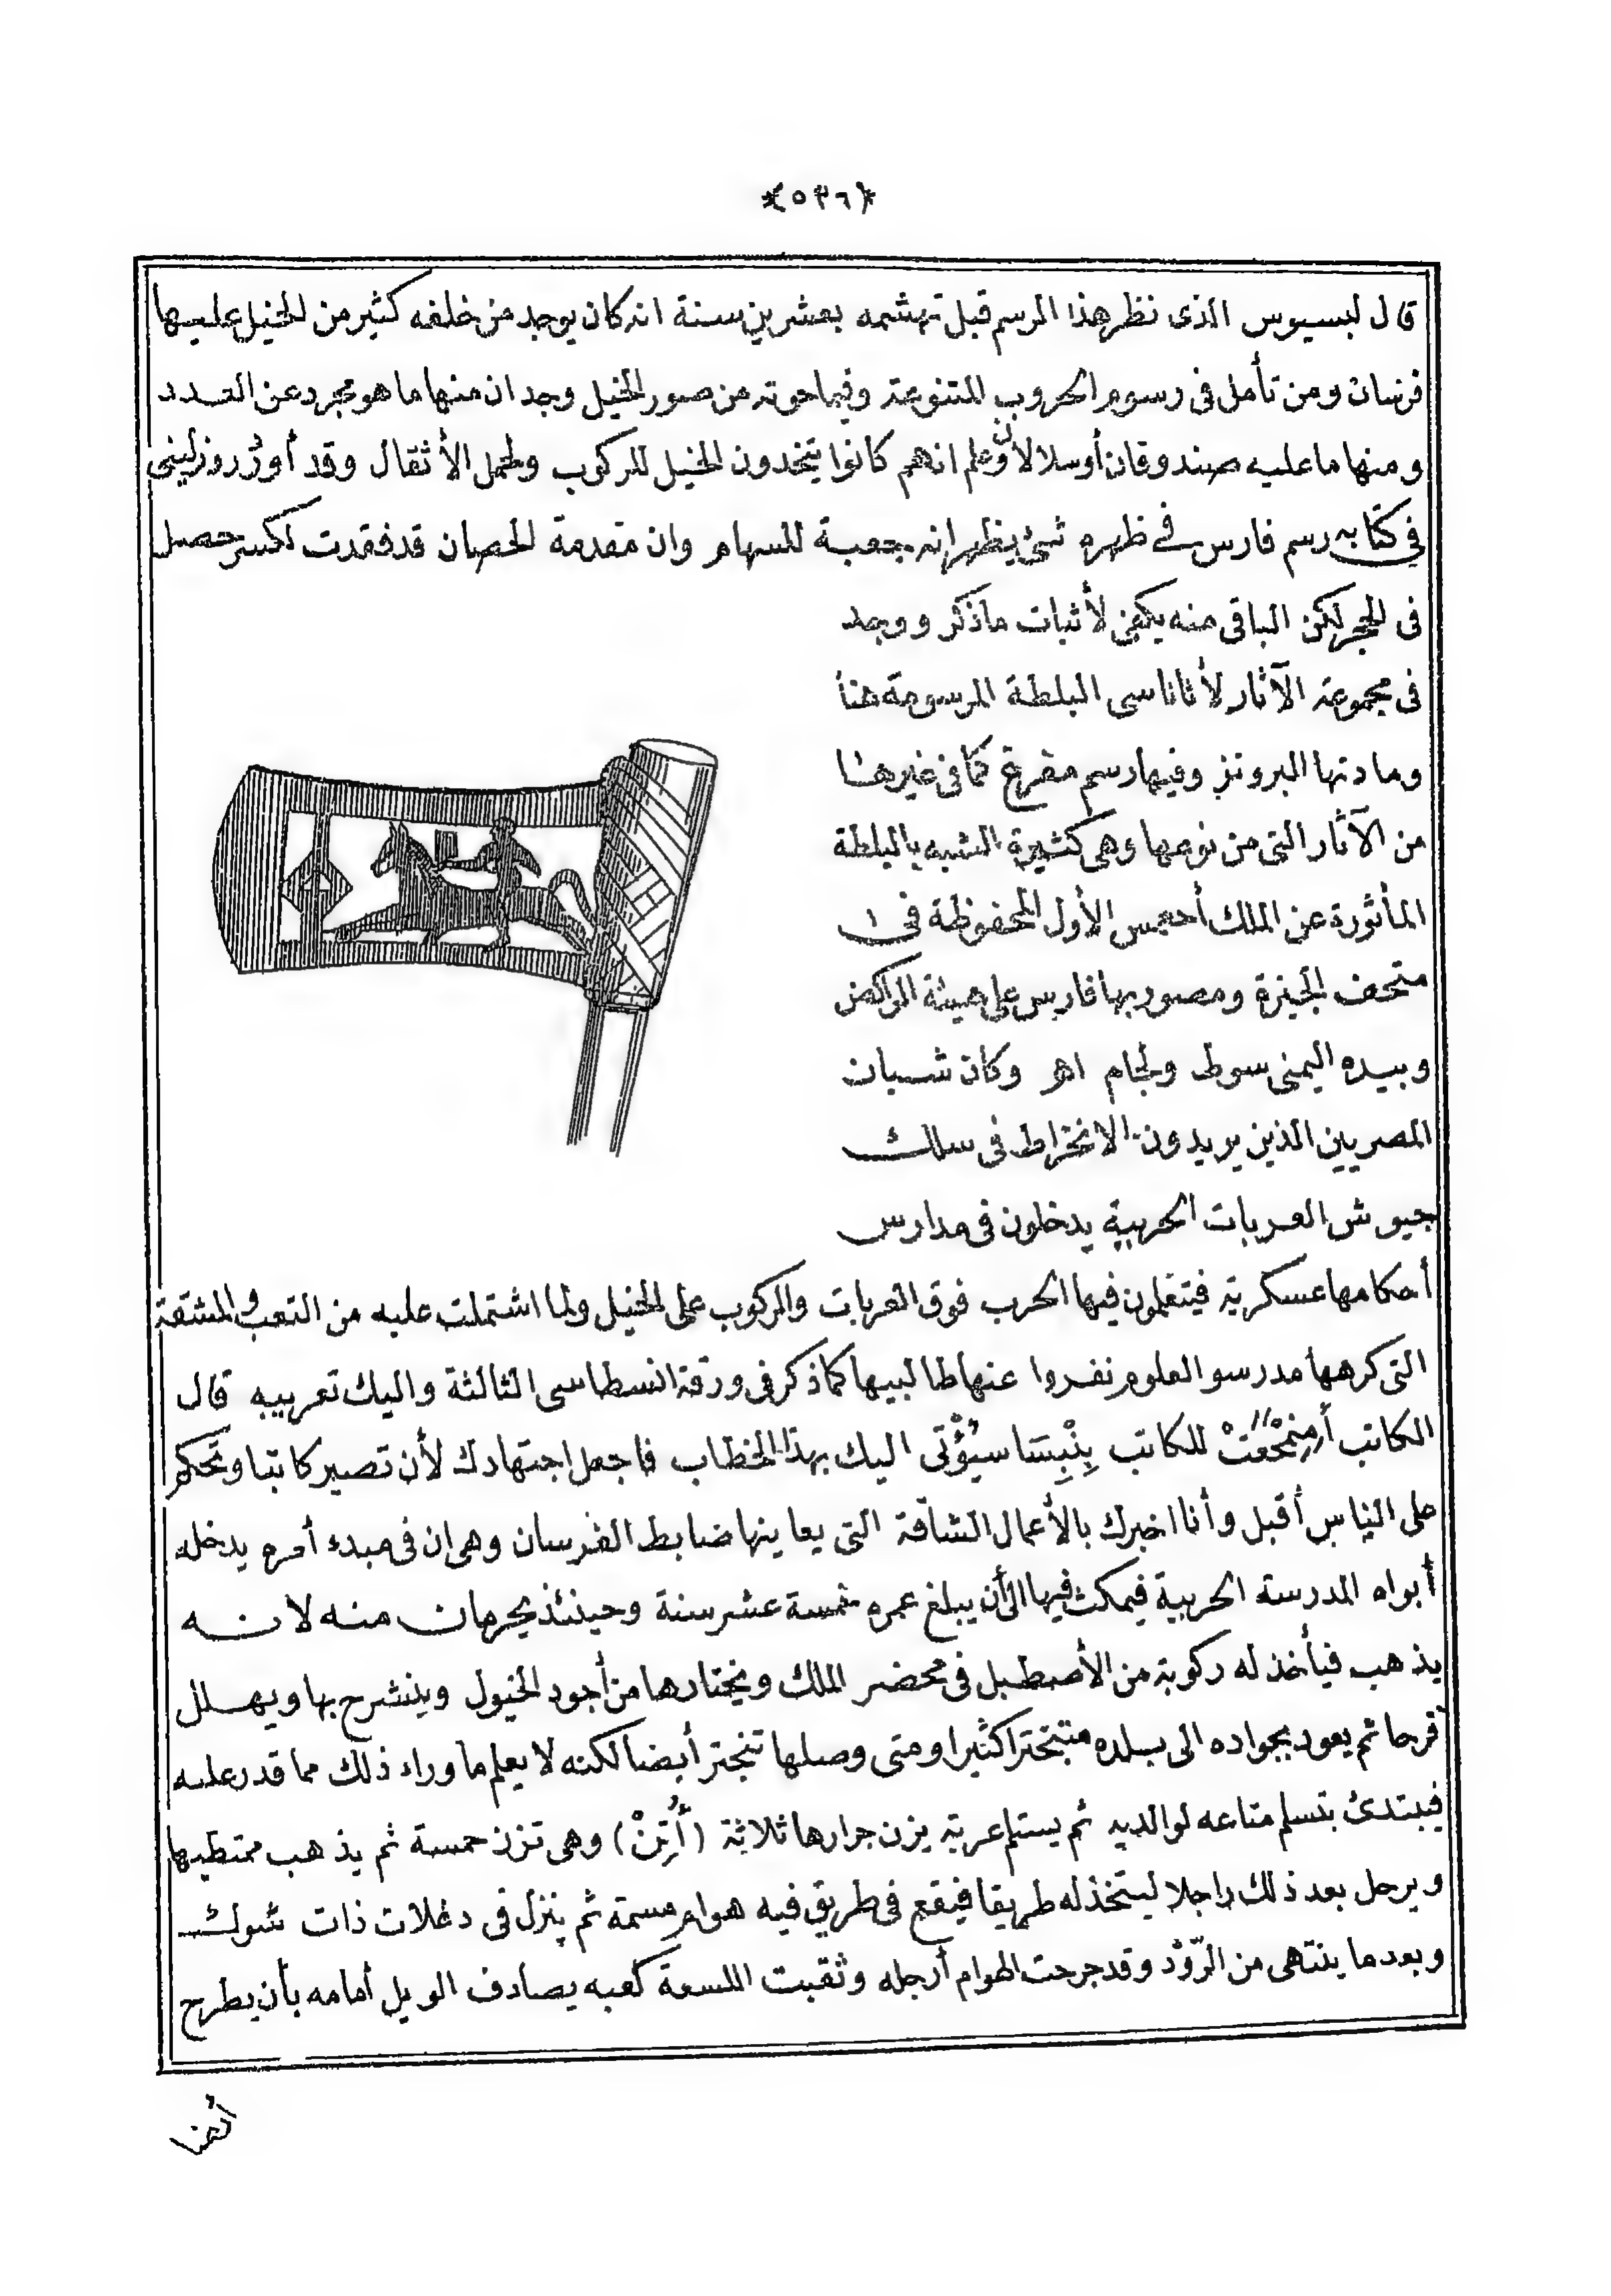 *(٥٣٦)*
قال لبسيوس الذى نظر هذا الرسم قبل تهشمه بعشرين سنة انه كان يوجد من خلفه كثير من الخيل عليها
فرسان ومن تأمل فى رسوم الحروب المتنوعة وفيما حوته من صور الخيل وجد ان منها ما هو مجرد عن العدد
ومنها ما عليه صندوقان أو سلالان وعلم انهم كانوا يتخذون الخيل للركوب ولحمل الأثقال وقد أورد روزلينى
فى كتابه رسم فارس فى ظهره شئ يظهر انه جعبة للسهام وان مقدمة الحصان قد فقدت لكسر حصل
فى الحجر لكن الباقى منه يكفى لأثبات ماذكر ووجد
فى مجموعة الآثار لأناناسى البلطة المرسومة هنا
ومادتها البرونز وفيها رسم مفرغ كما فى غيرها
من الآثار التى من نوعها وهى كثيرة الشبه بالبلطة
المأثورة عن الملك أحعمس الأول المحفوظة فى
متحف الجيزة ومصور بها فارس على هيئة الراكض
وبيده اليمنى سوط ولجام اهر وكان شبان
المصريين الذين يريدون الانخراط فى سلك
جيوش العربات الحربية يدخلون فى مدارس
أحكامها عسكرية فيتعلمون فيها الحرب فوق العربات والركوب على الخيل ولما اشتملت عليه من التعب والمشقة
التى كرهها مدرسو العلوم نفروا عنها طالبيها كما ذكر فى ورقة انسطاسى الثالثة واليك تعريبه قال
الكاتب أَمِنِمْحَعتْ للكاتب بِنْبِسَا سيُؤْتى اليك بهذا الخطاب فاجعل اجتهادك لأن تصير كاتبا وتحكم
على الناس أقبل وأنا اخبرك بالأعمال الشاقة التى يعاينها ضابط الفرسان وهى ان فى مبدء أمره يدخله
أبواه المدرسة الحربية فيمكث فيها الى أن يبلغ عمره خمسة عشر سنة وحينئذ يحرمان منه لانه
يذهب فيأخذ له ركوبة من الأصطبل فى محضر الملك ويختارها من أجود الخيول وينشرح بها ويهلل
فرحا ثم يعود بجواده الى بلده متبخترا كثيرا ومتى وصلها تبختر أيضا لكنه لا يعلم ما وراء ذلك مما قدر عليه
فيبتدئ بتسلم متاعه لوالديه ثم يستلم عربة يزن جرارها ثلاثة (أُتِنْ) وهى تزن خمسة ثم يذهب ممتطيها
ويرحل بعد ذلك راجلا ليتخذ له طريقا فيقع فى طريق فيه هوام مسمة ثم ينزل فى دغلات ذات شوك
وبعد ما ينتهى من الرّوْد وقد جرحت الهوام أرجله وثقبت اللسعة كعبه يصادف الويل أمامه بأن يطرح